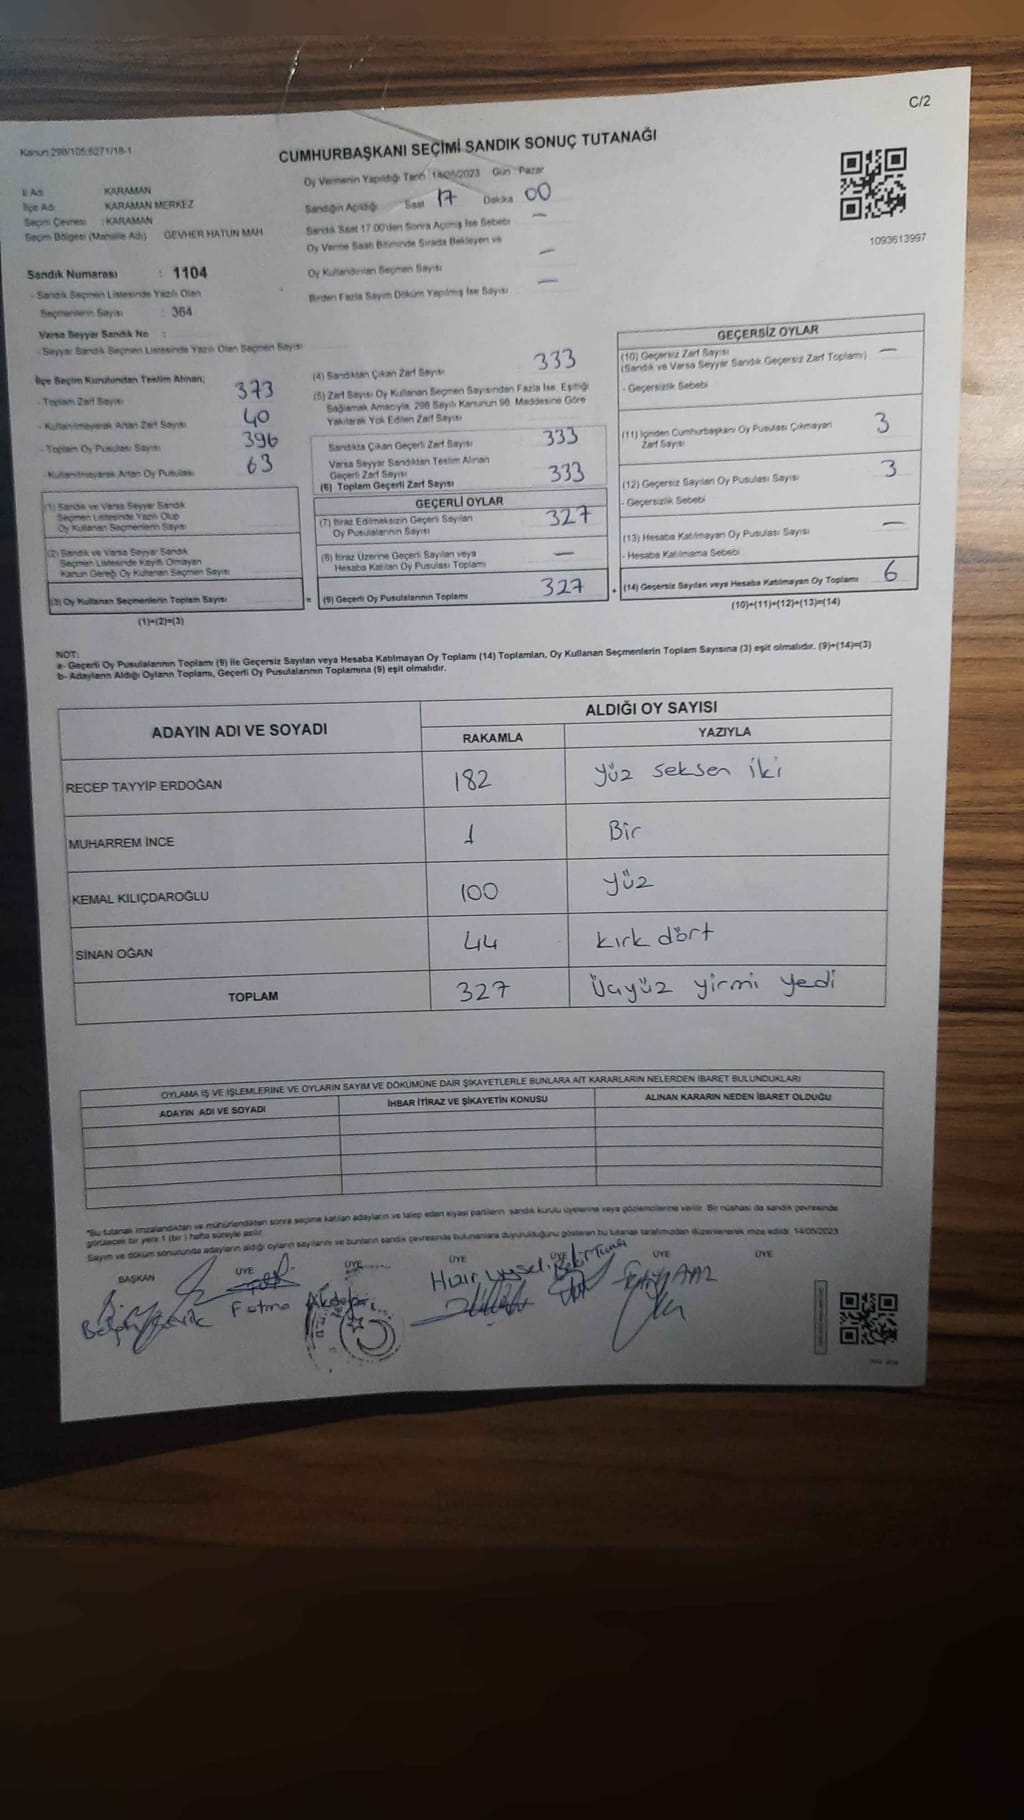 C/2
Kanun 298/105,6271/18-1
CUMHURBAŞKANI SEÇİMİ SANDIK SONUÇ TUTANAĞI
Oy Vermenin Yapıldığı Tarih 14/05/2023 Gün Pazar
Sandığın Açıldığı Saat 17 Dakika 00
Sandık Saat 17.00'den Sonra Açılmış İse Sebebi —
Oy Verme Saati Bitiminde Sırada Bekleyen ve
Oy Kullandırılan Seçmen Sayısı —
Birden Fazla Sayım Döküm Yapılmış İse Sayısı —
1093613997
İl Adı KARAMAN
İlçe Adı KARAMAN MERKEZ
Seçim Çevresi : KARAMAN
Seçim Bölgesi (Mahalle Adı) GEVHER HATUN MAH
Sandık Numarası : 1104
- Sandık Seçmen Listesinde Yazılı Olan
Seçmenlerin Sayısı : 364
Varsa Seyyar Sandık No :
- Seyyar Sandık Seçmen Listesinde Yazılı Olan Seçmen Sayısı
İlçe Seçim Kurulundan Teslim Alınan;
- Toplam Zarf Sayısı 373
- Kullanılmayarak Artan Zarf Sayısı 40
- Toplam Oy Pusulası Sayısı 396
- Kullanılmayarak Artan Oy Pusulası 63
(1) Sandık ve Varsa Seyyar Sandık
Seçmen Listesinde Yazılı Olup
Oy Kullanan Seçmenlerin Sayısı
(2) Sandık ve Varsa Seyyar Sandık
Seçmen Listesinde Kayıtlı Olmayan
Kanun Gereği Oy Kullanan Seçmen Sayısı
(3) Oy Kullanan Seçmenlerin Toplam Sayısı
(1)+(2)=(3)
(4) Sandıktan Çıkan Zarf Sayısı 333
(5) Zarf Sayısı Oy Kullanan Seçmen Sayısından Fazla İse, Eşitliği
Sağlamak Amacıyla, 298 Sayılı Kanunun 98. Maddesine Göre
Yakılarak Yok Edilen Zarf Sayısı
Sandıkta Çıkan Geçerli Zarf Sayısı 333
Varsa Seyyar Sandıktan Teslim Alınan
Geçerli Zarf Sayısı
(6) Toplam Geçerli Zarf Sayısı 333
GEÇERLİ OYLAR
(7) İtiraz Edilmeksizin Geçerli Sayılan
Oy Pusulalarının Sayısı 327
(8) İtiraz Üzerine Geçerli Sayılan veya
Hesaba Katılan Oy Pusulası Toplamı —
= (9) Geçerli Oy Pusulalarının Toplamı 327 +
GEÇERSİZ OYLAR
(10) Geçersiz Zarf Sayısı —
(Sandık ve Varsa Seyyar Sandık Geçersiz Zarf Toplamı)
- Geçersizlik Sebebi
(11) İçinden Cumhurbaşkanı Oy Pusulası Çıkmayan
Zarf Sayısı 3
(12) Geçersiz Sayılan Oy Pusulası Sayısı 3
- Geçersizlik Sebebi
(13) Hesaba Katılmayan Oy Pusulası Sayısı —
- Hesaba Katılmama Sebebi
(14) Geçersiz Sayılan veya Hesaba Katılmayan Oy Toplamı 6
(10)+(11)+(12)+(13)=(14)
NOT:
a- Geçerli Oy Pusulalarının Toplamı (9) ile Geçersiz Sayılan veya Hesaba Katılmayan Oy Toplamı (14) Toplamları, Oy Kullanan Seçmenlerin Toplam Sayısına (3) eşit olmalıdır. (9)+(14)=(3)
b- Adayların Aldığı Oyların Toplamı, Geçerli Oy Pusulalarının Toplamına (9) eşit olmalıdır.
ADAYIN ADI VE SOYADI ALDIĞI OY SAYISI
RAKAMLA YAZIYLA
RECEP TAYYİP ERDOĞAN 182 Yüz seksen iki
MUHARREM İNCE 1 Bir
KEMAL KILIÇDAROĞLU 100 Yüz
SİNAN OĞAN 44 kırk dört
TOPLAM 327 Üçyüz yirmi yedi
OYLAMA İŞ VE İŞLEMLERİNE VE OYLARIN SAYIM VE DÖKÜMÜNE DAİR ŞİKAYETLERLE BUNLARA AİT KARARLARIN NELERDEN İBARET BULUNDUKLARI
ADAYIN ADI VE SOYADI İHBAR İTİRAZ VE ŞİKAYETİN KONUSU ALINAN KARARIN NEDEN İBARET OLDUĞU
*Bu tutanak imzalandıktan ve mühürlendikten sonra seçime katılan adayların ve talep eden siyasi partilerin sandık kurulu üyelerine veya gözlemcilerine verilir. Bir nüshası da sandık çevresinde
görülecek bir yere 1 (bir) hafta süreyle asılır.
Sayım ve döküm sonucunda adayların aldığı oyların sayılarını ve bunların sandık çevresinde bulunanlara duyurulduğunu gösteren bu tutanak tarafımızdan düzenlenerek imza edildi. 14/05/2023
BAŞKAN ÜYE ÜYE ÜYE ÜYE ÜYE ÜYE
Fatma Akdoğan